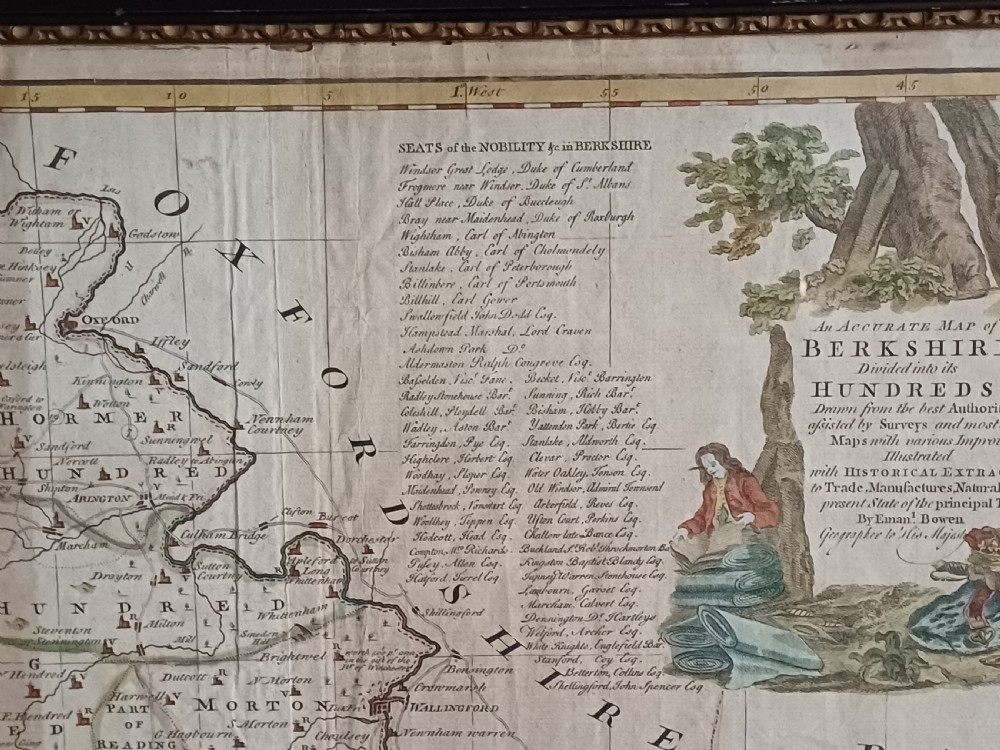 15
10
5
1. West
55
50
45
SEATS of the NOBILITY &c in BERKSHIRE
Windsor Great Lodge, Duke of Cumberland
Frogmore near Windsor, Duke of St. Albans
Hall Place, Duke of Buccleugh
Bray near Maidenhead, Duke of Roxburgh
Wightham, Earl of Abington
Bisham Abby, Earl of Cholmondely
Stanlake, Earl of Peterborough
Billinbere, Earl of Portsmouth
Billhill, Earl Gower
Swallowfield John Dodd Esq.
Hampstead Marshal, Lord Craven
Ashdown Park Do.
Aldermaston Ralph Congreve Esq.
Basselden, Visct. Fane
Radley Stonehouse Bart.
Coleshill, Pleydell Bart.
Wadley, Aston Bart.
Farringdon, Pye Esq.
Highclere, Herbert Esq.
Woodhay, Sloper Esq.
Maidenhead, Powney Esq.
Shottesbrook, Vansitart Esq.
Woollhey, Tippen Esq.
Hodcott, Head Esq.
Compton, Richards
Pusey, Allen Esq.
Hatford Tyrrel Esq.
Becket, Visct. Barrington
Sunning, Rich Bart.
Bisham, Hobby Bart.
Yattendon Park, Bertie Esq.
Stanlake, Aldworth Esq.
Clewar, Proctor Esq.
Water Oakley, Jenson Esq.
Old Windsor, Admiral Townsend
Arberfield, Reves Esq.
Ufton Court, Perkins Esq.
Challow late Dance Esq.
Buckland Sr. Robt. Throckmorton Ba
Kingston Baptist Blandy Esq.
Tupney Warren Stonehouse Esq.
Lambourn, Garset Esq.
Marcham, Calvert Esq.
Dennington Dr. Hartleys
Welford, Archer Esq.
White Knights, Englefield Bart.
Stanford, Coy Esq.
Betterton, Collins Esq.
Shellingford, John Spencer Esq
An ACCURATE MAP of
BERKSHIR
Divided into its
HUNDREDS
Drawn from the best Authori
assisted by Surveys and most
Maps with various Improv
Illustrated
with HISTORICAL EXTRA
to Trade, Manufactures, Natural
present State of the principal T
By Emanl. Bowen
Geographer to His Majest
FOXFORDSHIRE
Isis
Witham or
Wightam
Godstow
Botley
Hinksey
Charwell R.
OXFORD
Iffley
Sandford
Cowly
Kinnington
Wotton
HORMER
Sunningwel
Newnham
Courtney
Sandford
Norcott
Radley to Abington
HUNDRED
Shipton
ABINGTON
Marcham
Culham Bridge
Clifton
Burcot
Dorchester
Sutton
Courtny
Apleford
Long
Whittenham
Drayton
HUNDRED
Milton
Whittenham
Shillingford
Steventon
or Stonnington
Mill
Brightwel
Bensington
Hendred
Dulcott
N. Morton
Crowmarsh
Harwell
MORTON
WALLINGFORD
E. Hendred
PART
OF
READING
S. Morton
G. Hagbourn
Choulsey
Newnham warren